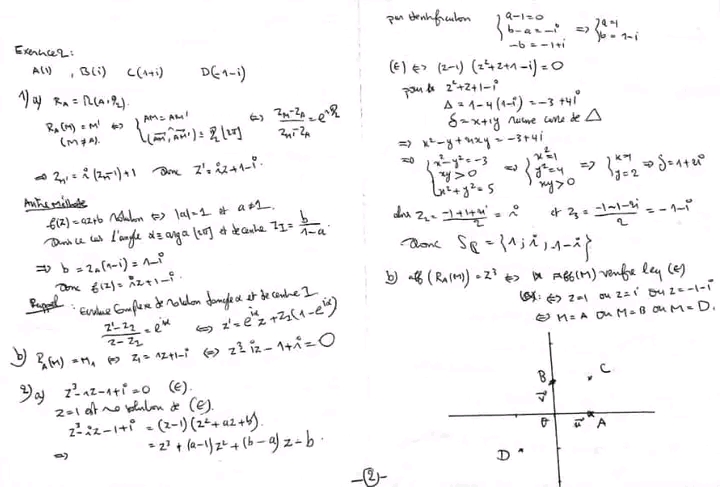 Exercice 2:
A(1) , B(i) C(1+i) D(-1-i)
1) a) R_A = R(A, π/2).
R_A(M) = M' ⇔ { AM = AM'
(M ≠ A). (AM, AM') = π/2 [2π] ⇔ (z_M' - z_A)/(z_M - z_A) = e^{iπ/2}
⇔ z_M' = i(z_M - 1) + 1 donc z' = iz + 1 - i.
Autre méthode
f(z) = az+b rotation ⇔ |a| = 1 et a ≠ 1.
Dans ce cas l'angle α ≡ arg a [2π] et de centre z_I = b/(1-a)
⇒ b = z_A(1-i) = 1-i
Donc f(z) = iz + 1 - i.
Rappel : écriture complexe de rotation d'angle α et de centre I
(z' - z_I)/(z - z_I) = e^{iα} ⇔ z' = e^{iα} z + z_I (1 - e^{iα})
b) R_A(M) = M_1 ⇔ z_1 = iz + 1 - i ⇔ z³ - iz - 1 + i = 0
2) a) z³ - iz - 1 + i = 0 (E).
z = 1 est une solution de (E).
z³ - iz - 1 + i = (z-1)(z² + az + b).
⇒ = z³ + (a-1)z² + (b-a)z - b.
par identification { a-1 = 0
b - a = -i
-b = -1+i ⇒ { a = 1
b = 1-i
(E) ⇔ (z-1)(z² + z + 1 - i) = 0
pour z² + z + 1 - i
Δ = 1 - 4(1-i) = -3 + 4i
δ = x + iy racine carrée de Δ
⇒ x² - y² + 2ixy = -3 + 4i
⇒ { x² - y² = -3
xy > 0
x² + y² = 5 ⇒ { x² = 1
y² = 4
xy > 0 ⇒ { x = 1
y = 2 ⇒ δ = 1 + 2i
alors z_2 = (-1+1+2i)/2 = i et z_3 = (-1-1-2i)/2 = -1-i
Donc S_ℂ = {1; i; -1-i}
b) aff(R_A(M)) = z³ ⇔ aff(M) vérifie l'eq (E)
⇔ z = 1 ou z = i ou z = -1-i
⇔ M = A ou M = B ou M = D.
B
C
v
O
u
A
D
-2-